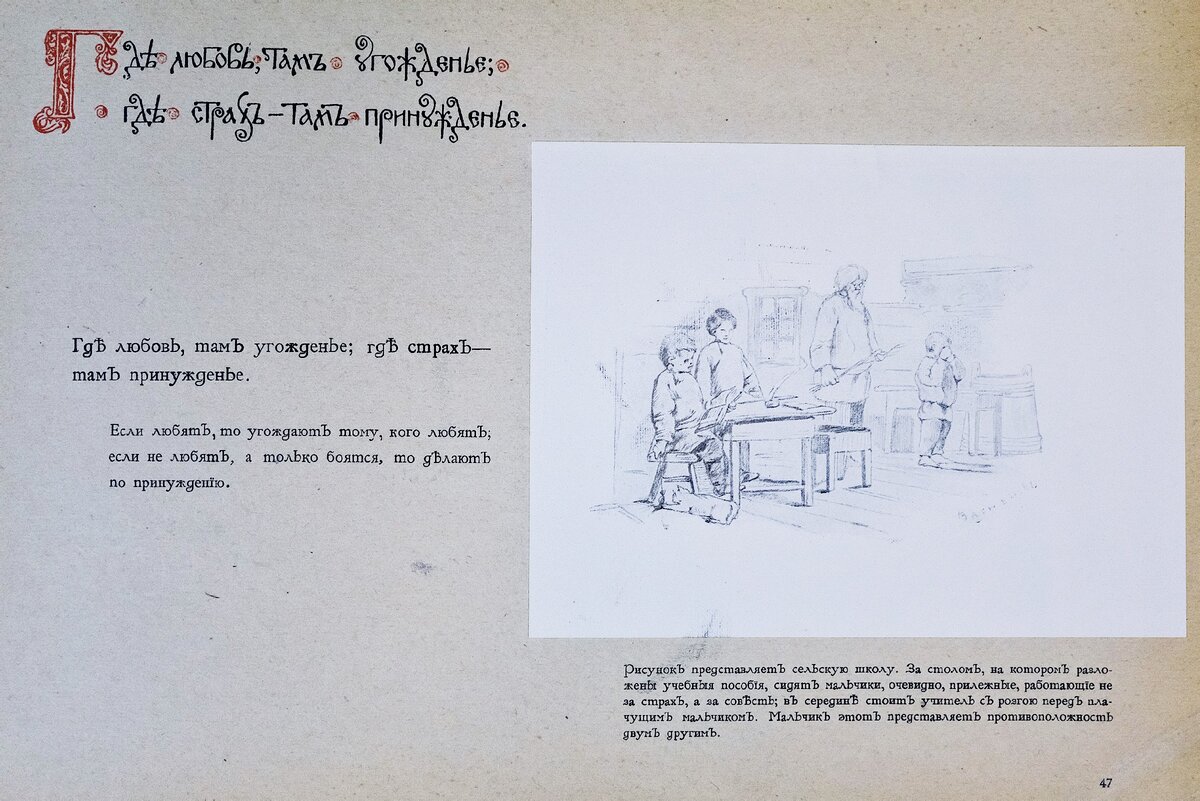 Гдѣ любовь, тамъ угожденье;
гдѣ страхъ—тамъ принужденье.
Гдѣ любовь, тамъ угожденье; гдѣ страхъ—
тамъ принужденье.
Если любятъ, то угождаютъ тому, кого любятъ;
если не любятъ, а только боятся, то дѣлаютъ
по принужденїю.
Рисунокъ представляетъ сельскую школу. За столомъ, на которомъ разло-
жены учебныя пособія, сидятъ мальчики, очевидно, прилежные, работающїе не
за страх, а за совѣсть; въ серединѣ стоитъ учитель съ розгою передъ пла-
чущимъ мальчикомъ. Мальчикъ этотъ представляетъ противоположность
двумъ другимъ.
47